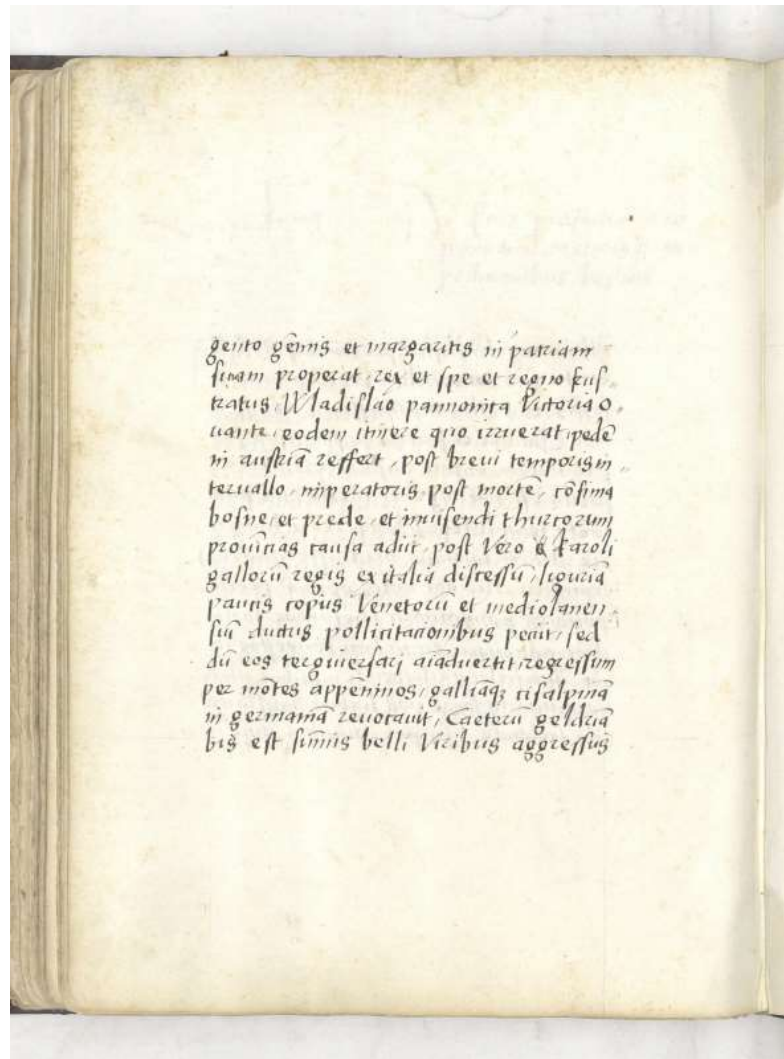 gento gēmis et margaritis in patriam
suam properat, rex et spe et regno frus„
tratus, Wladislao pannonica Victoria o„
uante, eodem itinere quo irruerat, pedē
in austriā reffert, post breui temporis in„
teruallo, imperatoris post mortē, cōfinia
bosne, et prede, et inuisendi thurcorum
prouincias causa adiit, post Vero Karoli
gallorū regis ex italia discessū, liguriā
paucis copiis Venetorū et mediolanen„
siū ductus pollicitacionibus peciit, sed
dū eos terguiersari aiaduertit, regressum
per mōtes appēninos, galliāqꝫ cisalpinā
in germaniā reuocauit, Caeterū geldriā
bis est sūmis belli Viribus aggressus